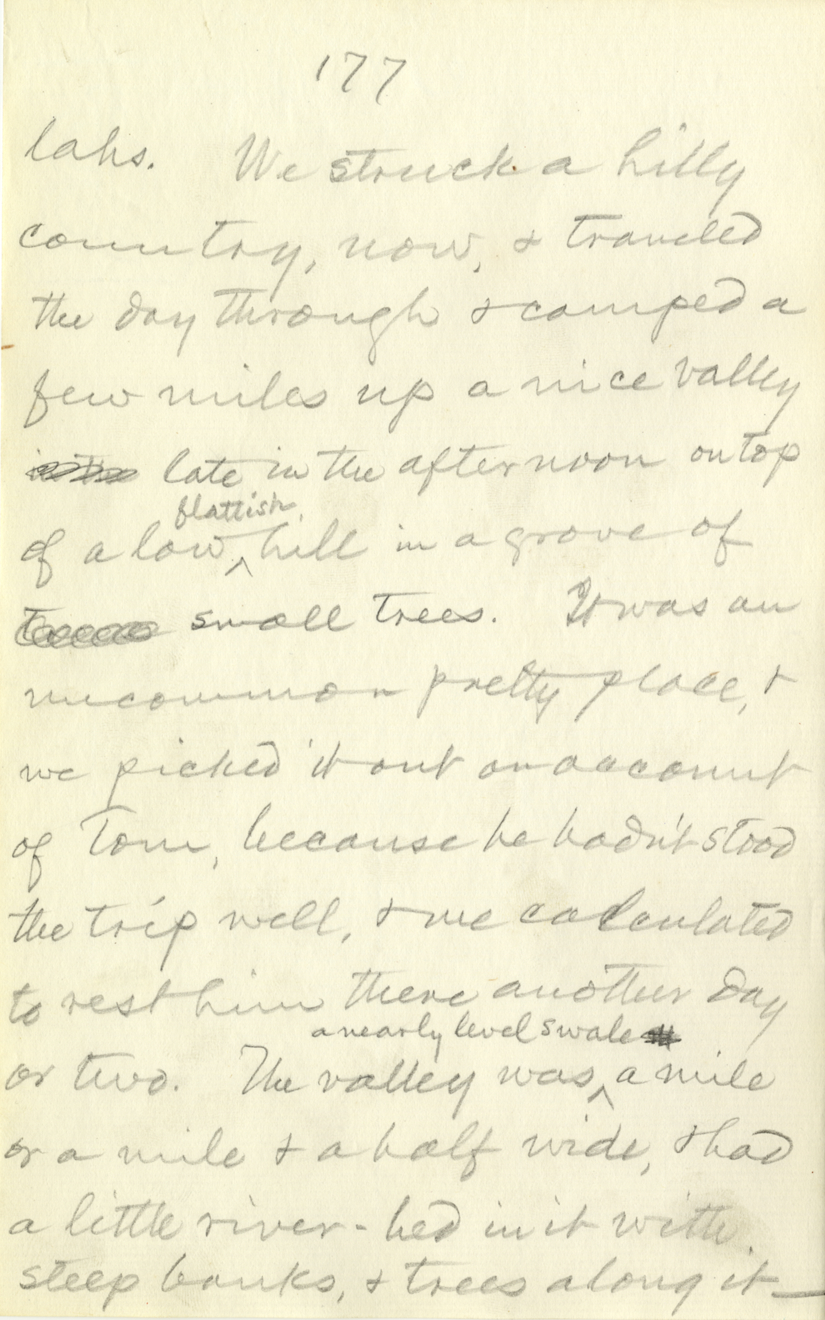 177
lahs. We struck a hilly
country, now, & traveled
the day through & camped a
few miles up a nice valley
late in the afternoon on top
flattish
of a low hill in a grove of
small trees. It was an
uncommon pretty place, &
we picked it out on account
of Tom, because he hadn't stood
the trip well, & we calculated
to rest him there another day
a nearly level swale
or two. The valley was a mile
or a mile & a half wide, & had
a little river-bed in it with
steep banks, & trees along it—